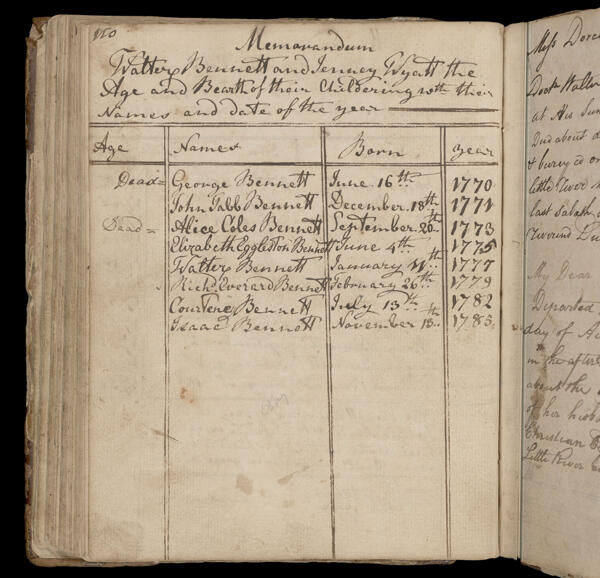 110
Memorandum
Walter Bennett and Jenney Wyatt the
Age and Bearth of their Childering with their
Names and date of the year
Age Names Born year
Dead= George Bennett June 16th 1770
John Tabb Bennett December 18th 1771
Dead= Alice Coles Bennett September 20th 1773
Elizabeth Eggleston Bennett June 4th 1775
Walter Bennett January 11th 1777
Richd Everard Bennett February 26th 1779
Courtene Bennett July 13th 1782
Isaac Bennett November 13th 1785
Miss
Doctr Walter
at His
Died about
last sabath
My Dear
Departed
day of
in the
about the
of her
Christian
Little River